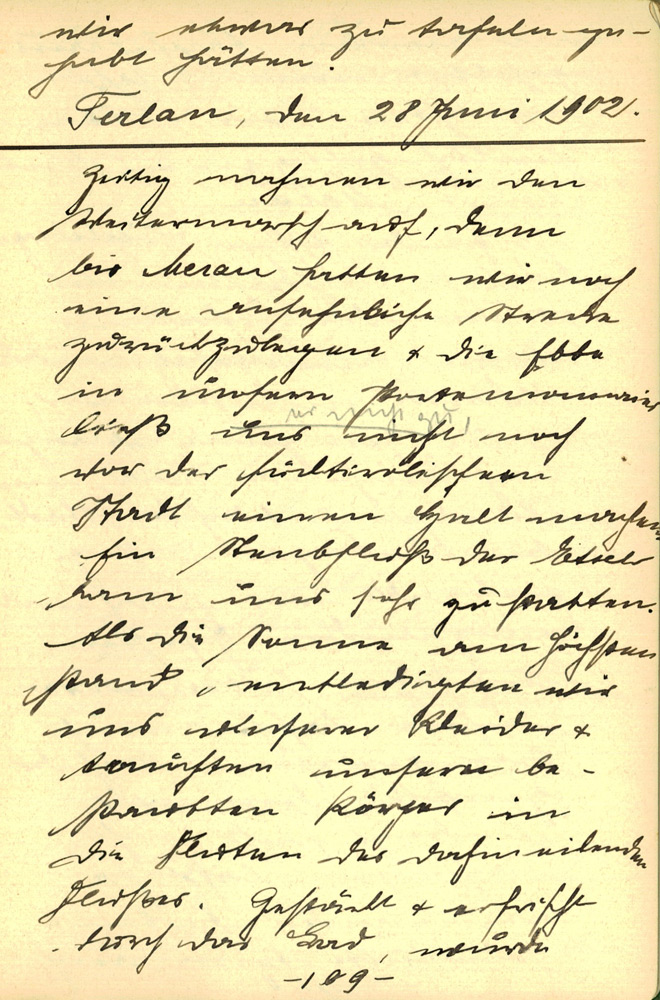 wir etwas zu tafeln ge-
habt hätten.
Terlan, den 28 Juni 1902.
Zeitig nahmen wir den
Weitermarsch auf, denn
bis Meran hatten wir noch
eine ansehnliche Strecke
zurückzulegen & die Ebbe
in unsern Portemonnaies
ließ uns nicht noch
vor der südtirolischen
Stadt einen Halt machen
Ein Nebenfluß der Etsch
kam uns sehr zu statten.
Als die Sonne am höchsten
stand, entledigten wir
uns unserer Kleider &
tauchten unsere be-
staubten Körper in
die Fluten des dahineilenden
Flußes. Gestärkt & erfrischt
durch das Bad, wurde
-109-